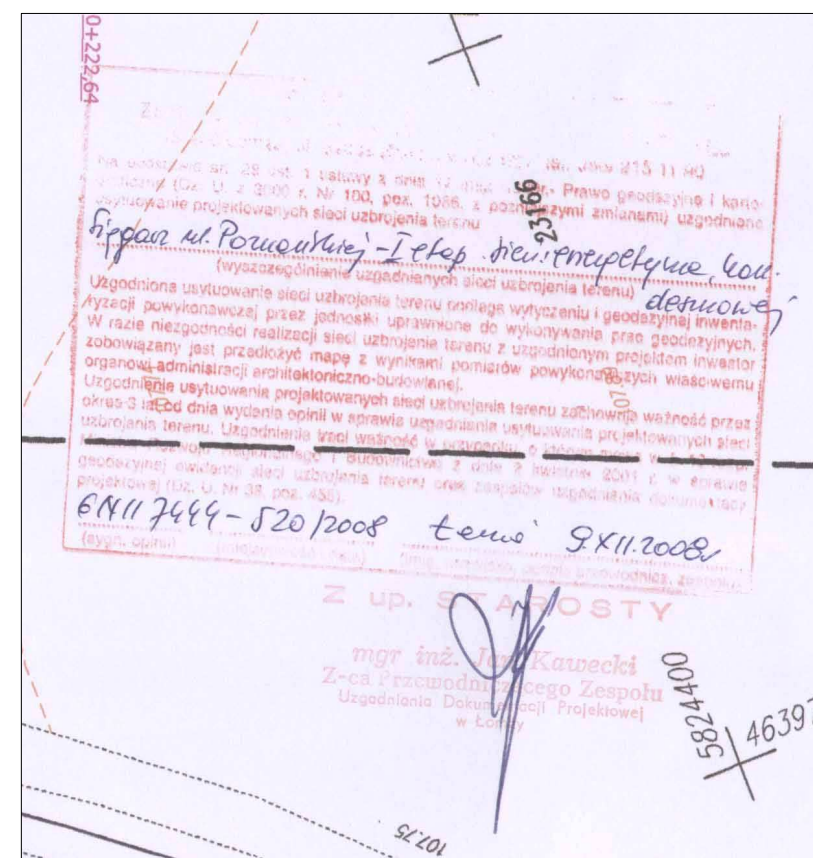 0+222,64
215 11 80
Na podstawie art. 28 ust. 1 ustawy z dnia 17 - Prawo geodezyjne i karto-
graficzne (Dz. U. z 2000 r. Nr 100, poz. 1086, z późniejszymi zmianami) uzgodniono
usytuowanie projektowanych sieci uzbrojenia terenu
23166
ul. Poznańskiej - I etap kan.
deszczowej
(wyszczególnianie uzgadnianych sieci uzbrojenia terenu)
Uzgodniona usytuowanie sieci uzbrojenia terenu podlega wytyczeniu i geodezyjnej inwenta-
ryzacji powykonawczej przez jednostki uprawnione do wykonywania prac geodezyjnych.
W razie niezgodności realizacji sieci uzbrojenia terenu z uzgodnionym projektem inwestor
zobowiązany jest przedłożyć mapę z wynikami pomiarów powykonawczych właściwemu
organowi administracji architektoniczno-budowlanej.
Uzgodnienie usytuowania projektowanych sieci uzbrojenia terenu zachowuje ważność przez
okres 3 lat od dnia wydania opinii w sprawie uzgodnienia usytuowania projektowanych sieci
uzbrojenia terenu. Uzgodnienie traci ważność w przypadku, o którym mowa w
Rozwoju Regionalnego i Budownictwa z dnia 2 kwietnia 2001 r. w sprawie
geodezyjnej ewidencji sieci uzbrojenia terenu oraz zespołów uzgadniania dokumentacji
projektowej (Dz. U. Nr 38, poz. 455).
GNII 7444-520/2008 9.XII.2008r
(sygn. opinii) (miejscowość, data)
Z up. STAROSTY
mgr inż. Jan Kawecki
Z-ca Przewodniczącego Zespołu
Uzgodniania Dokumentacji Projektowej
w Łomży
5824400
46397
107.75